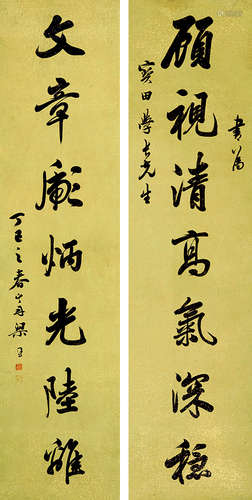 顧視清高氣深穩
書為
寶田學長先生
文章彪炳光陸離
丁丑之春 梁